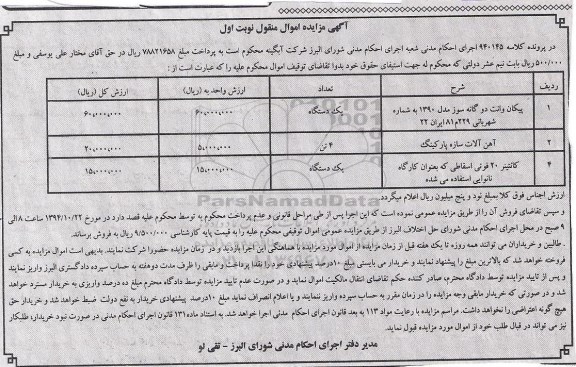 آگهی مزایده اموال منقول نوبت اول
در پرونده کلاسه ۹۴۰۱۴۵ اجرای احکام مدنی شعبه اجرای احکام مدنی شورای البرز شرکت آبگینه محکوم است به پرداخت مبلغ ۷۸۸۲۱۶۵۸ ریال در حق آقای مختار علی یوسفی و مبلغ
۵۰۰/۰۰۰ ریال بابت نیم عشر دولتی که محکوم له جهت استیفای حقوق خود بدوا تقاضای توقیف اموال محکوم علیه را که عبارت است از :
ردیف شرح تعداد ارزش واحد به (ریال) ارزش کل (ریال)
۱ پیکان وانت دو گانه سوز مدل ۱۳۹۰ به شماره شهربانی ۲۲۹م۸۱ ایران ۲۲ یک دستگاه ۶۰,۰۰۰,۰۰۰ ۶۰,۰۰۰,۰۰۰
۲ آهن آلات سازه پارکینگ ۴ تن ۵,۰۰۰,۰۰۰ ۲۰,۰۰۰,۰۰۰
۴ کانتینر ۲۰ فوتی اسقاطی که بعنوان کارگاه نانوایی استفاده می شده یک دستگاه ۱۵,۰۰۰,۰۰۰ ۱۵,۰۰۰,۰۰۰
ParsNamadData
ارزش اجناس فوق کلا بمبلغ نود و پنج میلیون ریال اعلام میگردد.
و سپس تقاضای فروش آن را از طریق مزایده عمومی نموده است که این اجرا پس از طی مراحل قانونی و عدم پرداخت محکوم به توسط محکوم علیه قصد دارد در مورخ ۱۳۹۴/۱۰/۲۲ ساعت ۸ الی
۹ صبح در محل اجرای احکام مدنی شورای حل اختلاف البرز از طریق مزایده عمومی اموال توقیفی محکوم علیه را به قیمت پایه کارشناسی ۹/۵۰۰/۰۰۰ ریال به فروش برساند.
. طالبین و خریداران می توانند همه روزه تا یک هفته قبل از زمان مزایده از اموال مورد مزایده با هماهنگی این اجرا بازدید و در زمان مزایده حضورا شرکت نمایند. بدیهی است اموال مزایده به کسی
فروخته خواهد شد که بالاترین مبلغ را پیشنهاد نمایند و خریدار می بایستی مبلغ ۱۰درصد پیشنهادی خود را نقدا پرداخت و مابقی را ظرف مدت دوهفته به حساب سپرده دادگستری البرز واریز نمایند
و پس از تایید مزایده توسط دادگاه محترم، صادر کننده حکم تقاضای انتقال مالکیت اموال نماید و در صورت عدم تایید مزایده توسط دادگاه محترم مبلغ ده درصد واریزی به خریدار مسترد خواهد
شد و در صورتی که خریدار مابقی وجه مزایده را در زمان مقرر به حساب سپرده واریز ننمایند و یا اعلام انصراف نماید مبلغ ۱۰درصد پیشنهادی خریدار به نفع دولت ضبط خواهد شد و خریدار حق
هیچ گونه اعتراضی را نخواهد داشت. مراسم مزایده با رعایت مواد ۱۱۳ به بعد قانون اجرای احکام مدنی اجرا خواهد شد. به استناد ماده ۱۳۱ قانون اجرای احکام مدنی در صورت نبود خریدار، طلبکار
نیز می تواند در قبال طلب خود از اموال مورد مزایده قبول نماید.
مدیر دفتر اجرای احکام مدنی شورای البرز - تقی لو